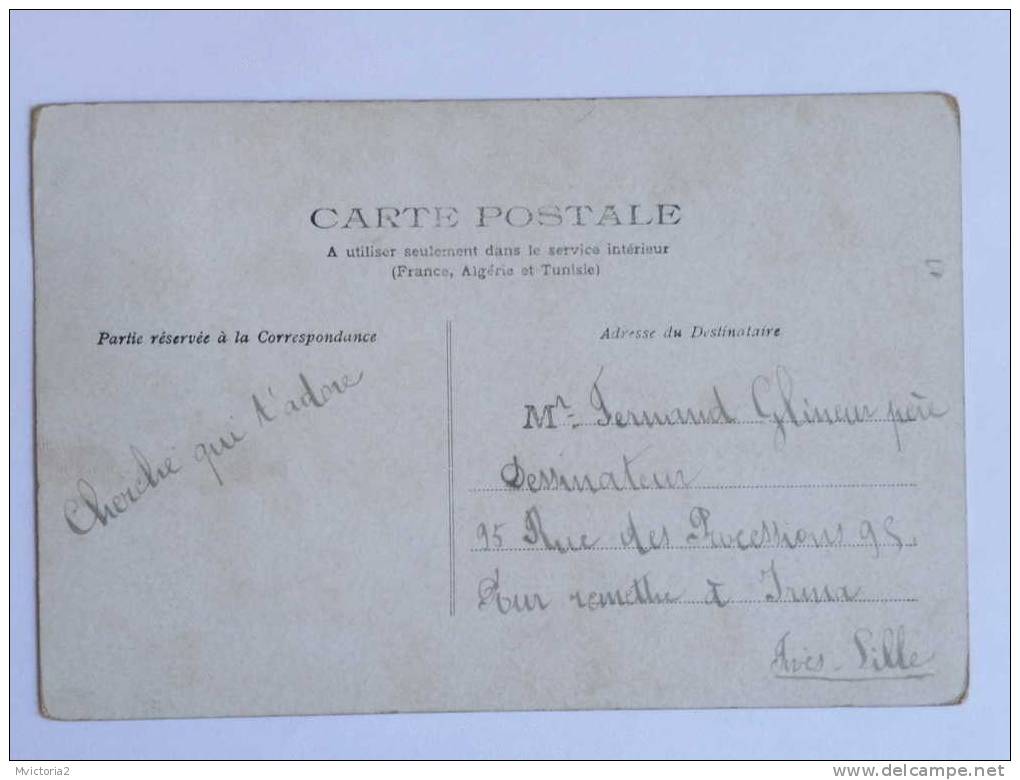 CARTE POSTALE
A utiliser seulement dans le service intérieur
(France, Algérie et Tunisie)
Partie réservée à la Correspondance
Adresse du Destinataire
Cherche qui t'adore
Mr. Fernand Glineur père
Dessinateur
95 Rue des Processions 95.
Pour remettre à Irma
Fives-Lille
Mvictoria2
delcampe.net